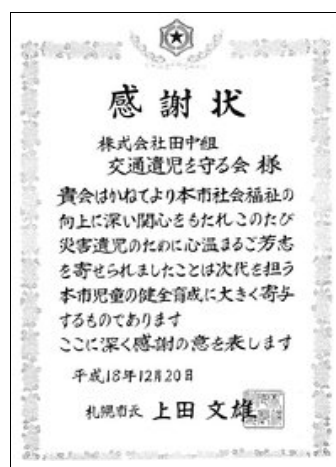 感謝状
株式会社田中組
交通遺児を守る会 様
貴会はかねてより本市社会福祉の
向上に深い関心をもたれこのたび
災害遺児のために心温まるご芳志
を寄せられましたことは次代を担う
本市児童の健全育成に大きく寄与
するものであります
ここに深く感謝の意を表します
平成18年12月20日
札幌市長 上田文雄